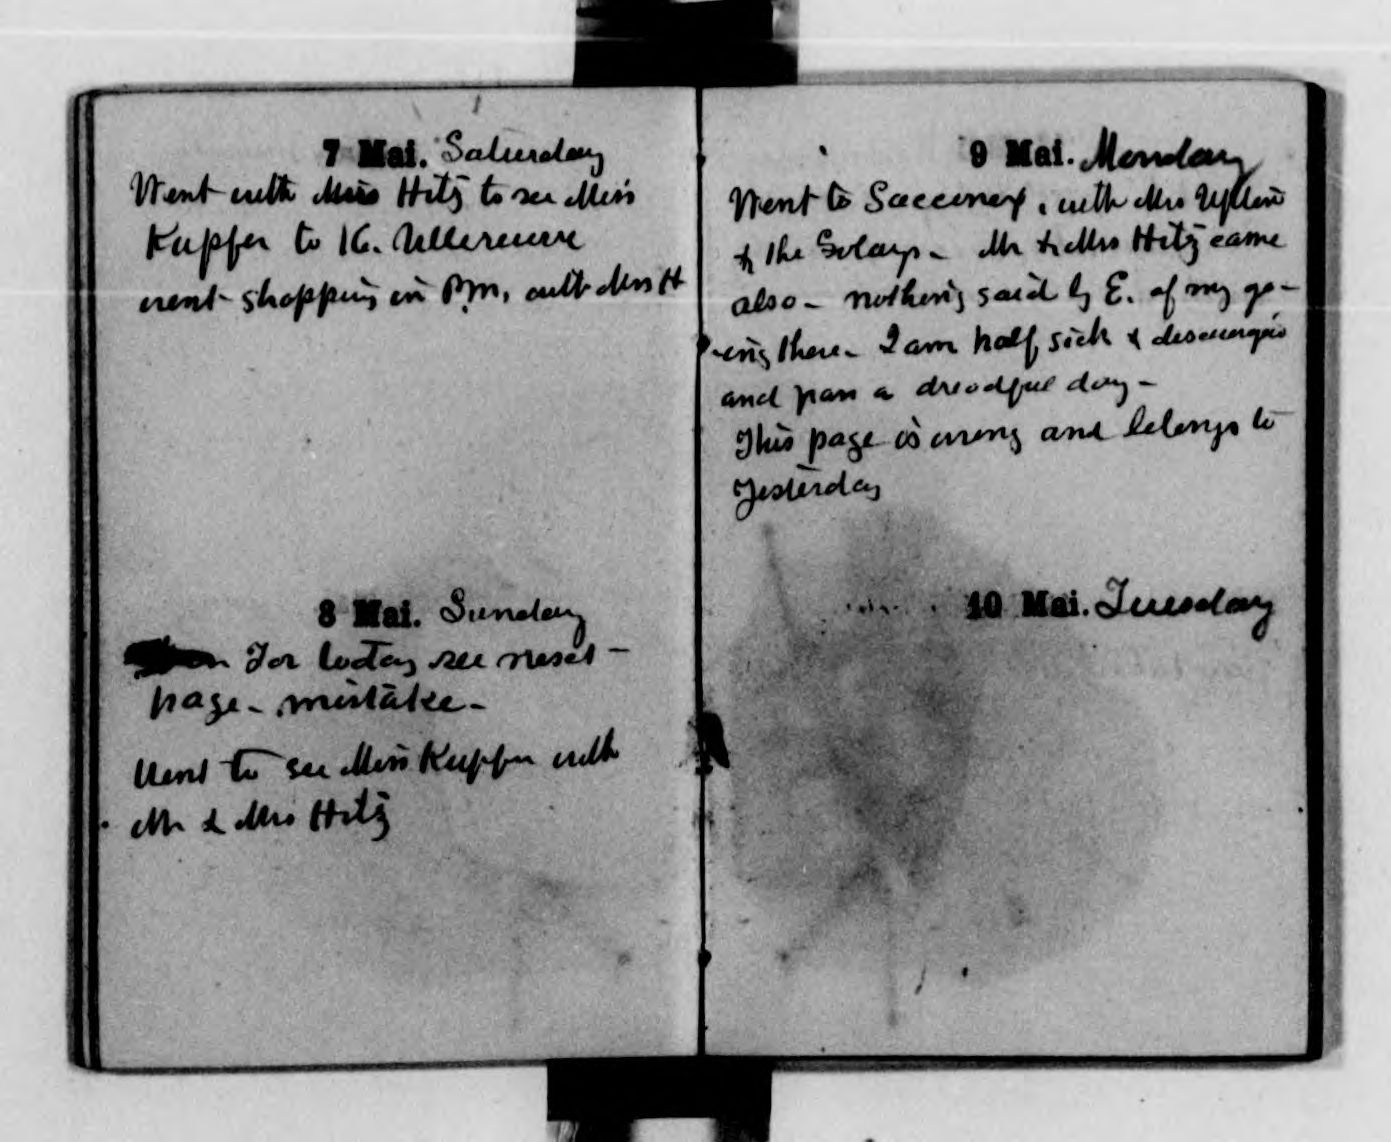 7 Mai. Saturday
Went with Mrs Hitz to see Miss
Kupfer to 16.
went shopping in P.m. with Mrs H
8 Mai. Sunday
For today see next
page - mistake -
Went to see Miss Kupfer with
Mr & Mrs Hitz
9 Mai. Monday
Went to Sacconex, with Mrs
& the - Mr & Mrs Hitz came
also - nothing said by E. of my go-
-ing there - I am half sick &
and pass a dreadful day -
This page is wrong and belongs to
Yesterday
10 Mai. Tuesday